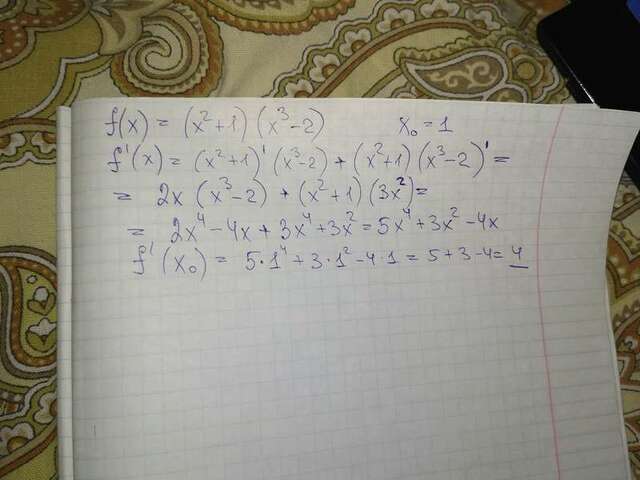 f(x) = (x²+1)(x³-2) x₀ = 1
f'(x) = (x²+1)'(x³-2) + (x²+1)(x³-2)' =
= 2x(x³-2) + (x²+1)(3x²) =
= 2x⁴ - 4x + 3x⁴ + 3x² = 5x⁴ + 3x² - 4x
f'(x₀) = 5·1⁴ + 3·1² - 4·1 = 5 + 3 - 4 = 4